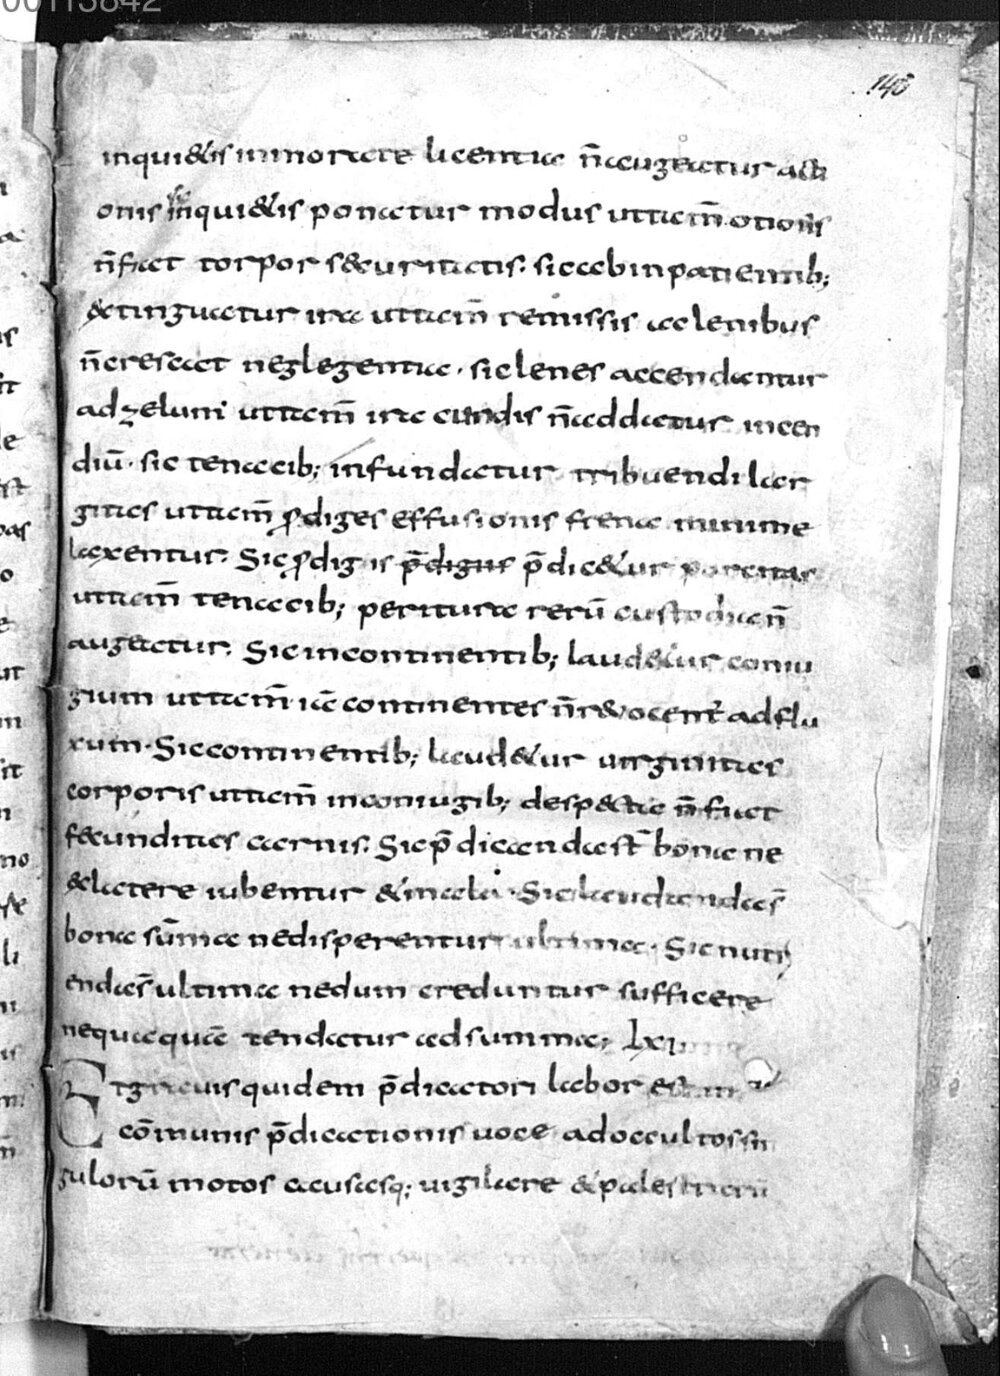 00113842
148
inqui&is immoratae licentia n̄ augeatur acti
onis inqui&is ponatur modus ut tam̄ otiosis
n̄ fiat torpor securitatis. sic ab inpatientib;
&tinguatur ira ut tam̄ remissis ac lenibus
n̄ crescat neglegentia. sic lenes accendantur
ad zelum ut tam̄ iracundis n̄ addatur incen
diū. sic tenacib; infundatur tribuendi lar
gitas ut tam̄ ꝓdiges effusionis frena minime
laxentur. Sic ꝓdigis p̄digus p̄dic&ur parcitas
ut tam̄ tenacib; periturae rerū custodia n̄
augeatur. Sic incontinentib; laud&ur coniu
gium ut tam̄ iā continentes n̄ reuocent ad flu
xum. Sic continentib; laud&ur uirginitas
corporis ut tam̄ in coniugib; despecta n̄ fiat
fecunditas carnis. Sic p̄dicanda st̄ bona ne
&latere iubentur & mala. Sic laudanda s̄
bona sūma ne disperentur ultima. Sic nutri
enda s̄ ultima ne dum creduntur sufficere
nequaquā tendatur ad summa; Lxi
Et grauis quidem p̄dicatori labor est in
cōmunis p̄dicationis uoce ad occultos sin
gulorū motos causasq; uigilare & palestrarū